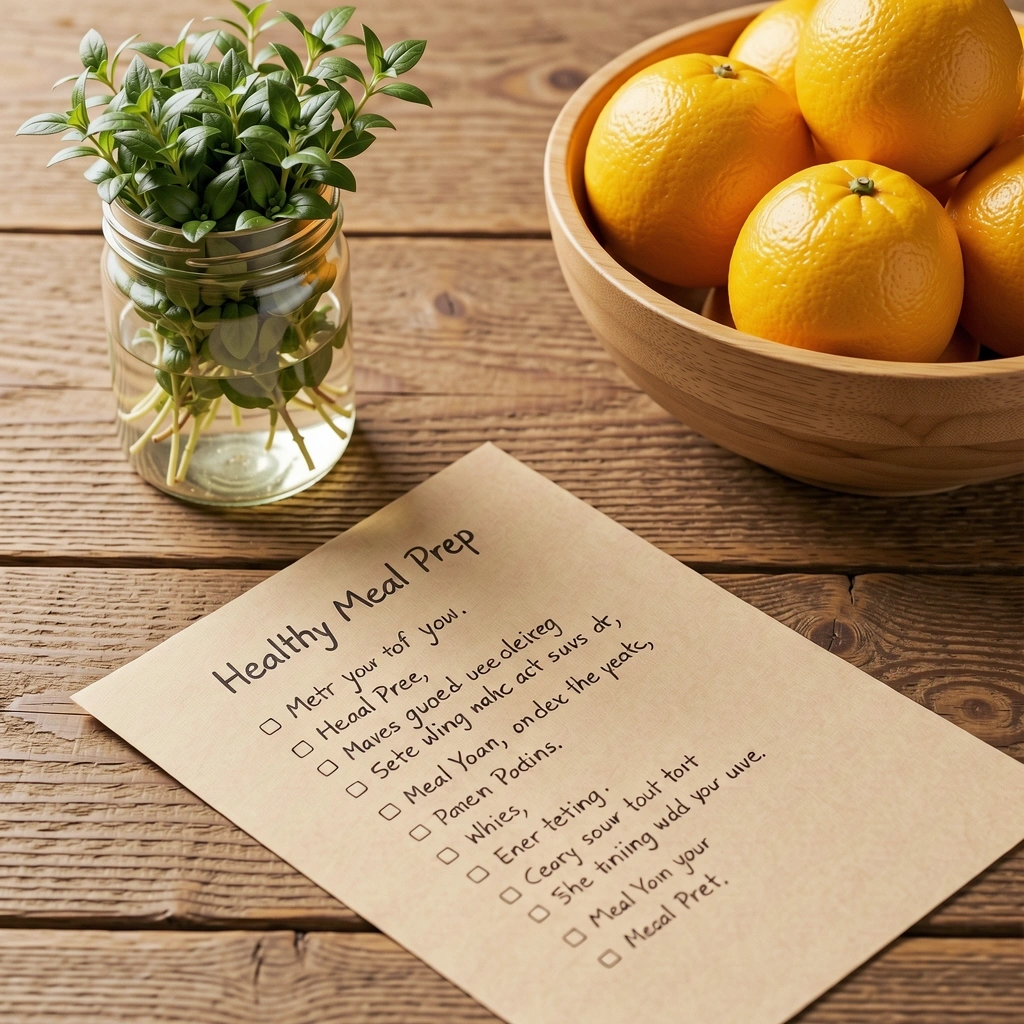 Healthy Meal Prep
Metr your tof yow.
Heaal Pree,
Maves guoed uee oleireg
Sete wing nahc act suvs dr,
Meal Yoan, on dex the yeatc,
Panen Poctins.
Whies,
Ener teting.
Ceary souir tout toit
She tiniing wdd your uive.
Meal Yoin your
Mecal Pret.